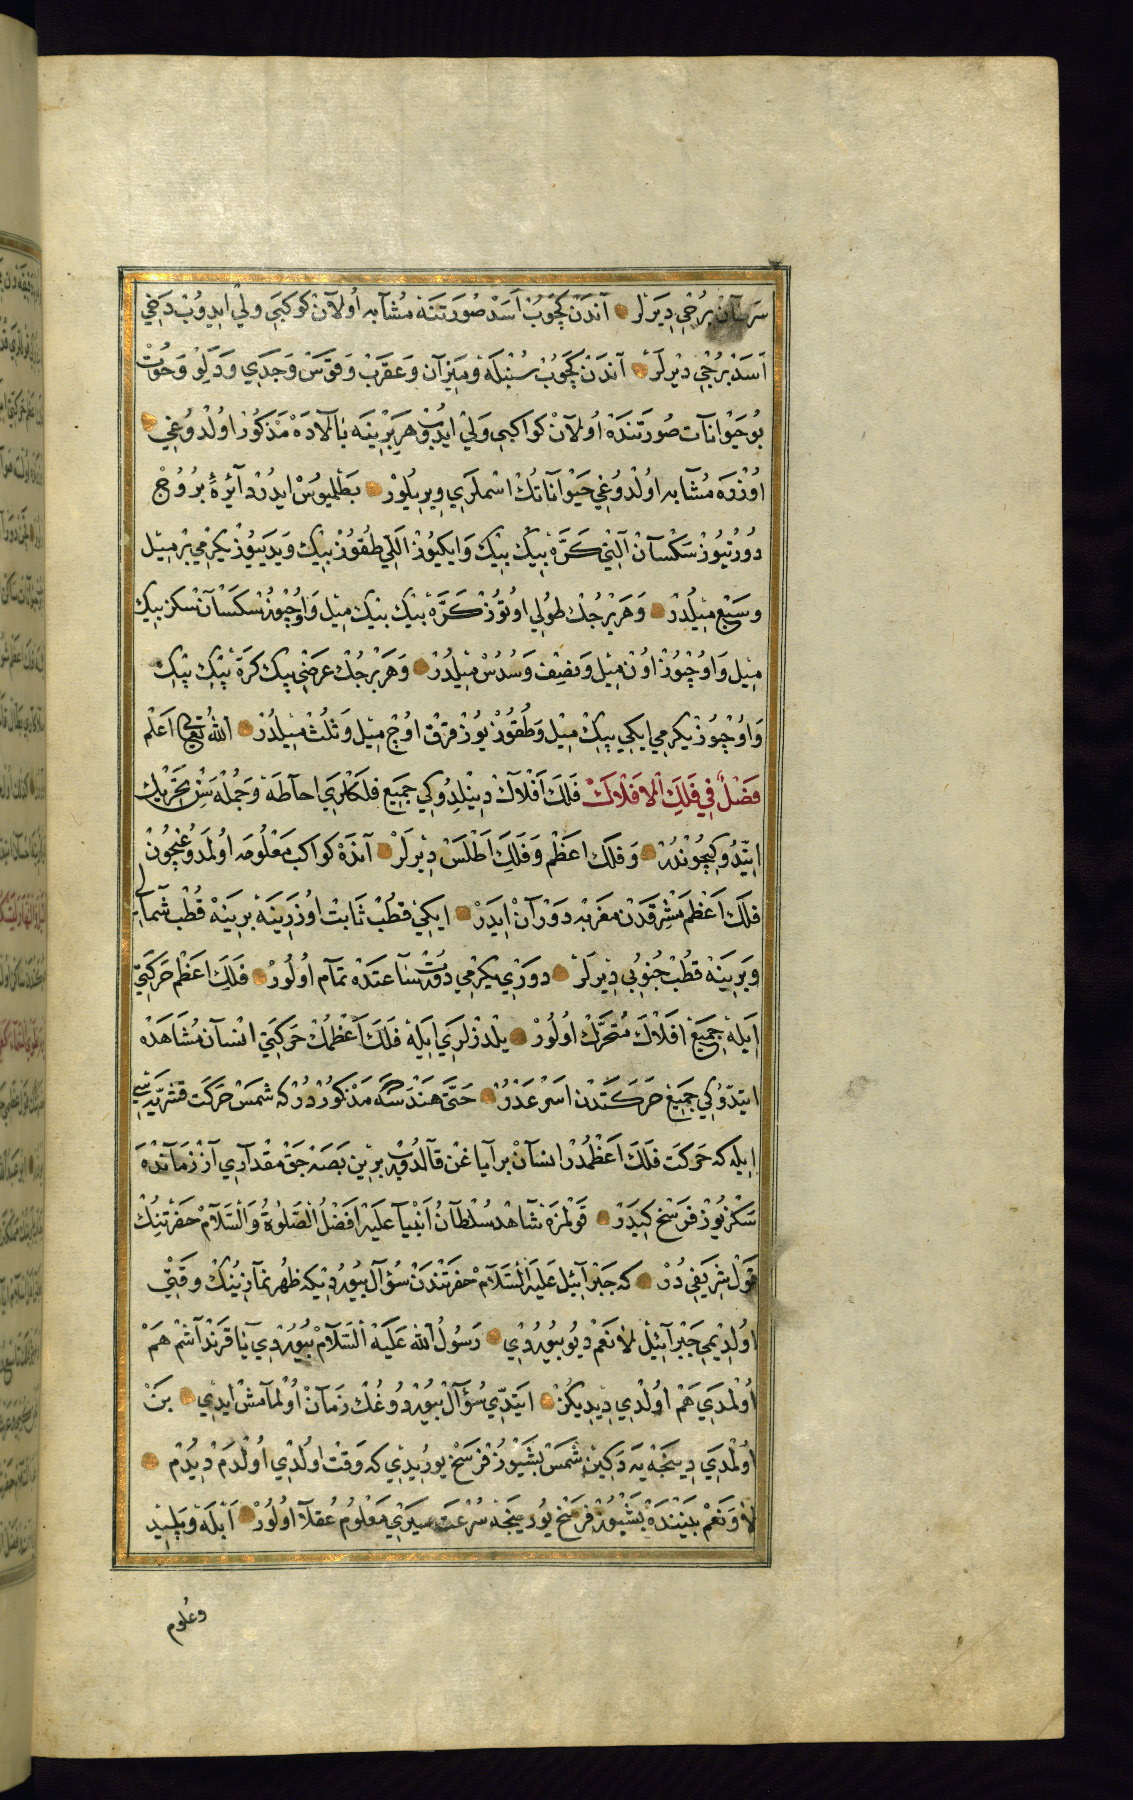 سرطان برجی دیرلر آندن كچوب اسد صورتنه مشابه اولان كوكبی ولی ایدوب دخی
اسد برجی دیرلر آندن كچوب سنبله ومیزان وعقرب وقوس وجدی ودلو وحوت
بو حیوانات صورتنده اولان كواكبی ولی ایدوب هر برینه بالاده مذكور اولدوغی
اوزره مشابه اولدوغی حیواناتك اسملری ویریلور بطلمیوس ایدر دائرهٔ بروج
دورتیوز سكسان التی كره بیك بیك وایكیوز اللی طقوز بیك ویدییوز یكرمی بر میل
وسبع میلدر وهر برجك طولی اوتوز كره بیك بیك میل واوچیوز سكسان سكز بیك
میل واوچیوز اون میل ونصف وسدس میلدر وهر برجك عرضی بیك كره بیك بیك
واوچیوز یكرمی ایكی بیك میل وطقوز یوز قرق اوچ میل وثلث میلدر الله تعالی اعلم
فصل فی فلك الافلاك فلك افلاك دینلدوكی جمیع فلكلری احاطه وجمله سن تحریك
ایتدوكیچوندر وفلك اعظم وفلك اطلس دیرلر آنده كواكب معلومه اولمدوغیچون
فلك اعظم مشرقدن مغربه دوران ایدر ایكی قطب ثابت اوزرینه برینه قطب شمالی
وبرینه قطب جنوبی دیرلر دوری یكرمی دورت ساعتده تمام اولور فلك اعظم حركتی
ایله جمیع افلاك متحرك اولور یلدزلری ایله فلك اعظمك حركتی انسان مشاهده
ایتدوكی جمیع حركتدن اسرعدر حتی هندسه مذكوردركه شمس حركت قسریه سی
ایله كه حركت فلك اعظمدر انسان بر ایاغن قالدروب برین بصنجق مقداری آز زمانده
سكزیوز فرسخ كیدر قولمزه شاهد سلطان انبیا علیه افضل الصلوة والسلام حضرتنك
قول شریفی در كه جبرائیل علیه السلام حضرتندن سؤال بیوردیكه ظهر نمازینك وقتی
اولدیمی جبرائیل لا نعم دیو بیوردی رسول الله علیه السلام بیوردی یا قرنداشم هم
اولمدی هم اولدی دیدیكن ایتدی سؤال بیوردوغك زمان اولمامش ایدی بن
اولمدی دینجه یه دكین شمس بشیوز فرسخ یوریدی كه وقت اولدی اولدم دیدم
لا ونعم بیننده بشیوز فرسخ یورینجه سرعت سیری معلوم عقلا اولور ایله وبیلید
وعلوم